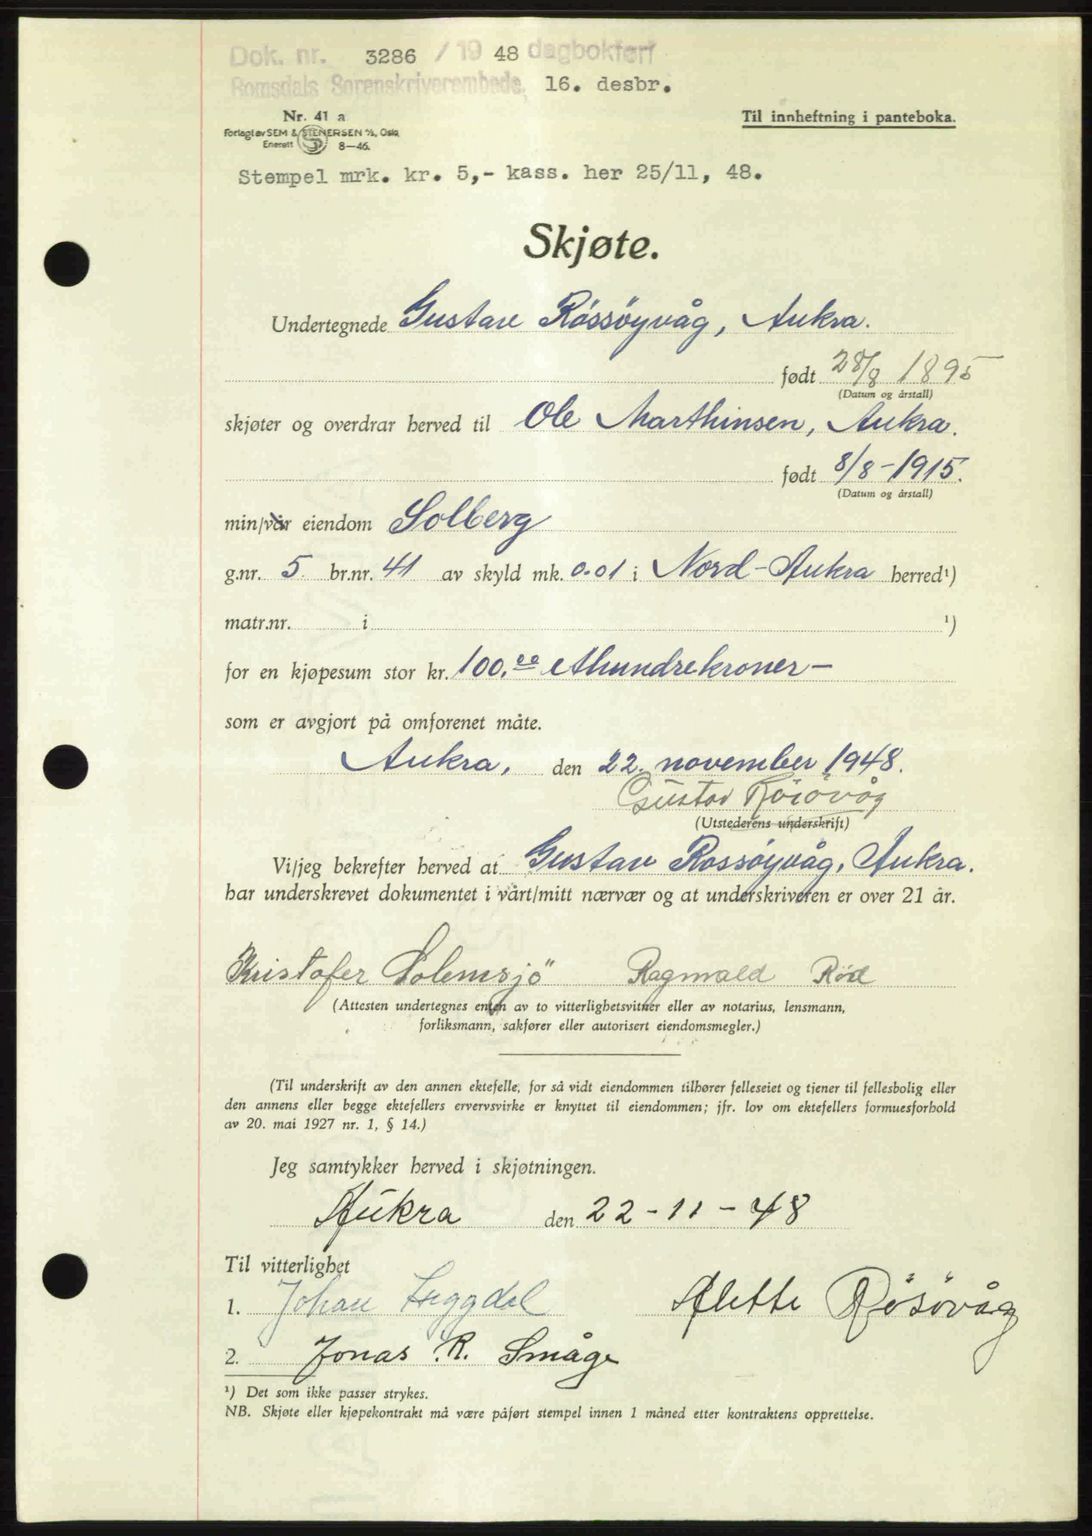 Dok. nr. 3286 / 19 48 dagbokført
Romsdals Sorenskriverembede, 16. desbr.
Nr. 41 a
Til innheftning i panteboka.
Forlagt av SEM & STENERSEN A/S, Oslo
Enerett 8-46.
Stempel mrk. kr. 5,- kass. her 25/11, 48.
Skjøte.
Undertegnede Gustav Róssöyvåg, Aukra.
født 28/8 1895
(Datum og årstall)
skjøter og overdrar herved til Ole Marthinsen, Aukra.
født 8/8-1915.
(Datum og årstall)
min/vår eiendom Solberg
g.nr. 5 br.nr. 41 av skyld mk. 0.01 i Nord-Aukra herred¹)
matr.nr. i ¹)
for en kjøpesum stor kr. 100.00 etthundrekroner-
som er avgjort på omforenet måte.
Aukra, den 22. november 1948.
Gustav Rösövåg
(Utstederens underskrift)
Vi/jeg bekrefter herved at Gustav Rossøyvåg, Aukra.
har underskrevet dokumentet i vårt/mitt nærvær og at underskriveren er over 21 år.
Kristofer Solemsjö Ragnvald Rød
(Attesten undertegnes enten av to vitterlighetsvitner eller av notarius, lensmann,
forliksmann, sakfører eller autorisert eiendomsmegler.)
(Til underskrift av den annen ektefelle, for så vidt eiendommen tilhører felleseiet og tjener til fellesbolig eller
den annens eller begge ektefellers ervervsvirke er knyttet til eiendommen; jfr. lov om ektefellers formuesforhold
av 20. mai 1927 nr. 1, § 14.)
Jeg samtykker herved i skjøtningen.
Aukra den 22-11-48
Til vitterlighet
1. Johan Alette Rösövåg
2. Jonas R. Småge
¹) Det som ikke passer strykes.
NB. Skjøte eller kjøpekontrakt må være påført stempel innen 1 måned etter kontraktens opprettelse.